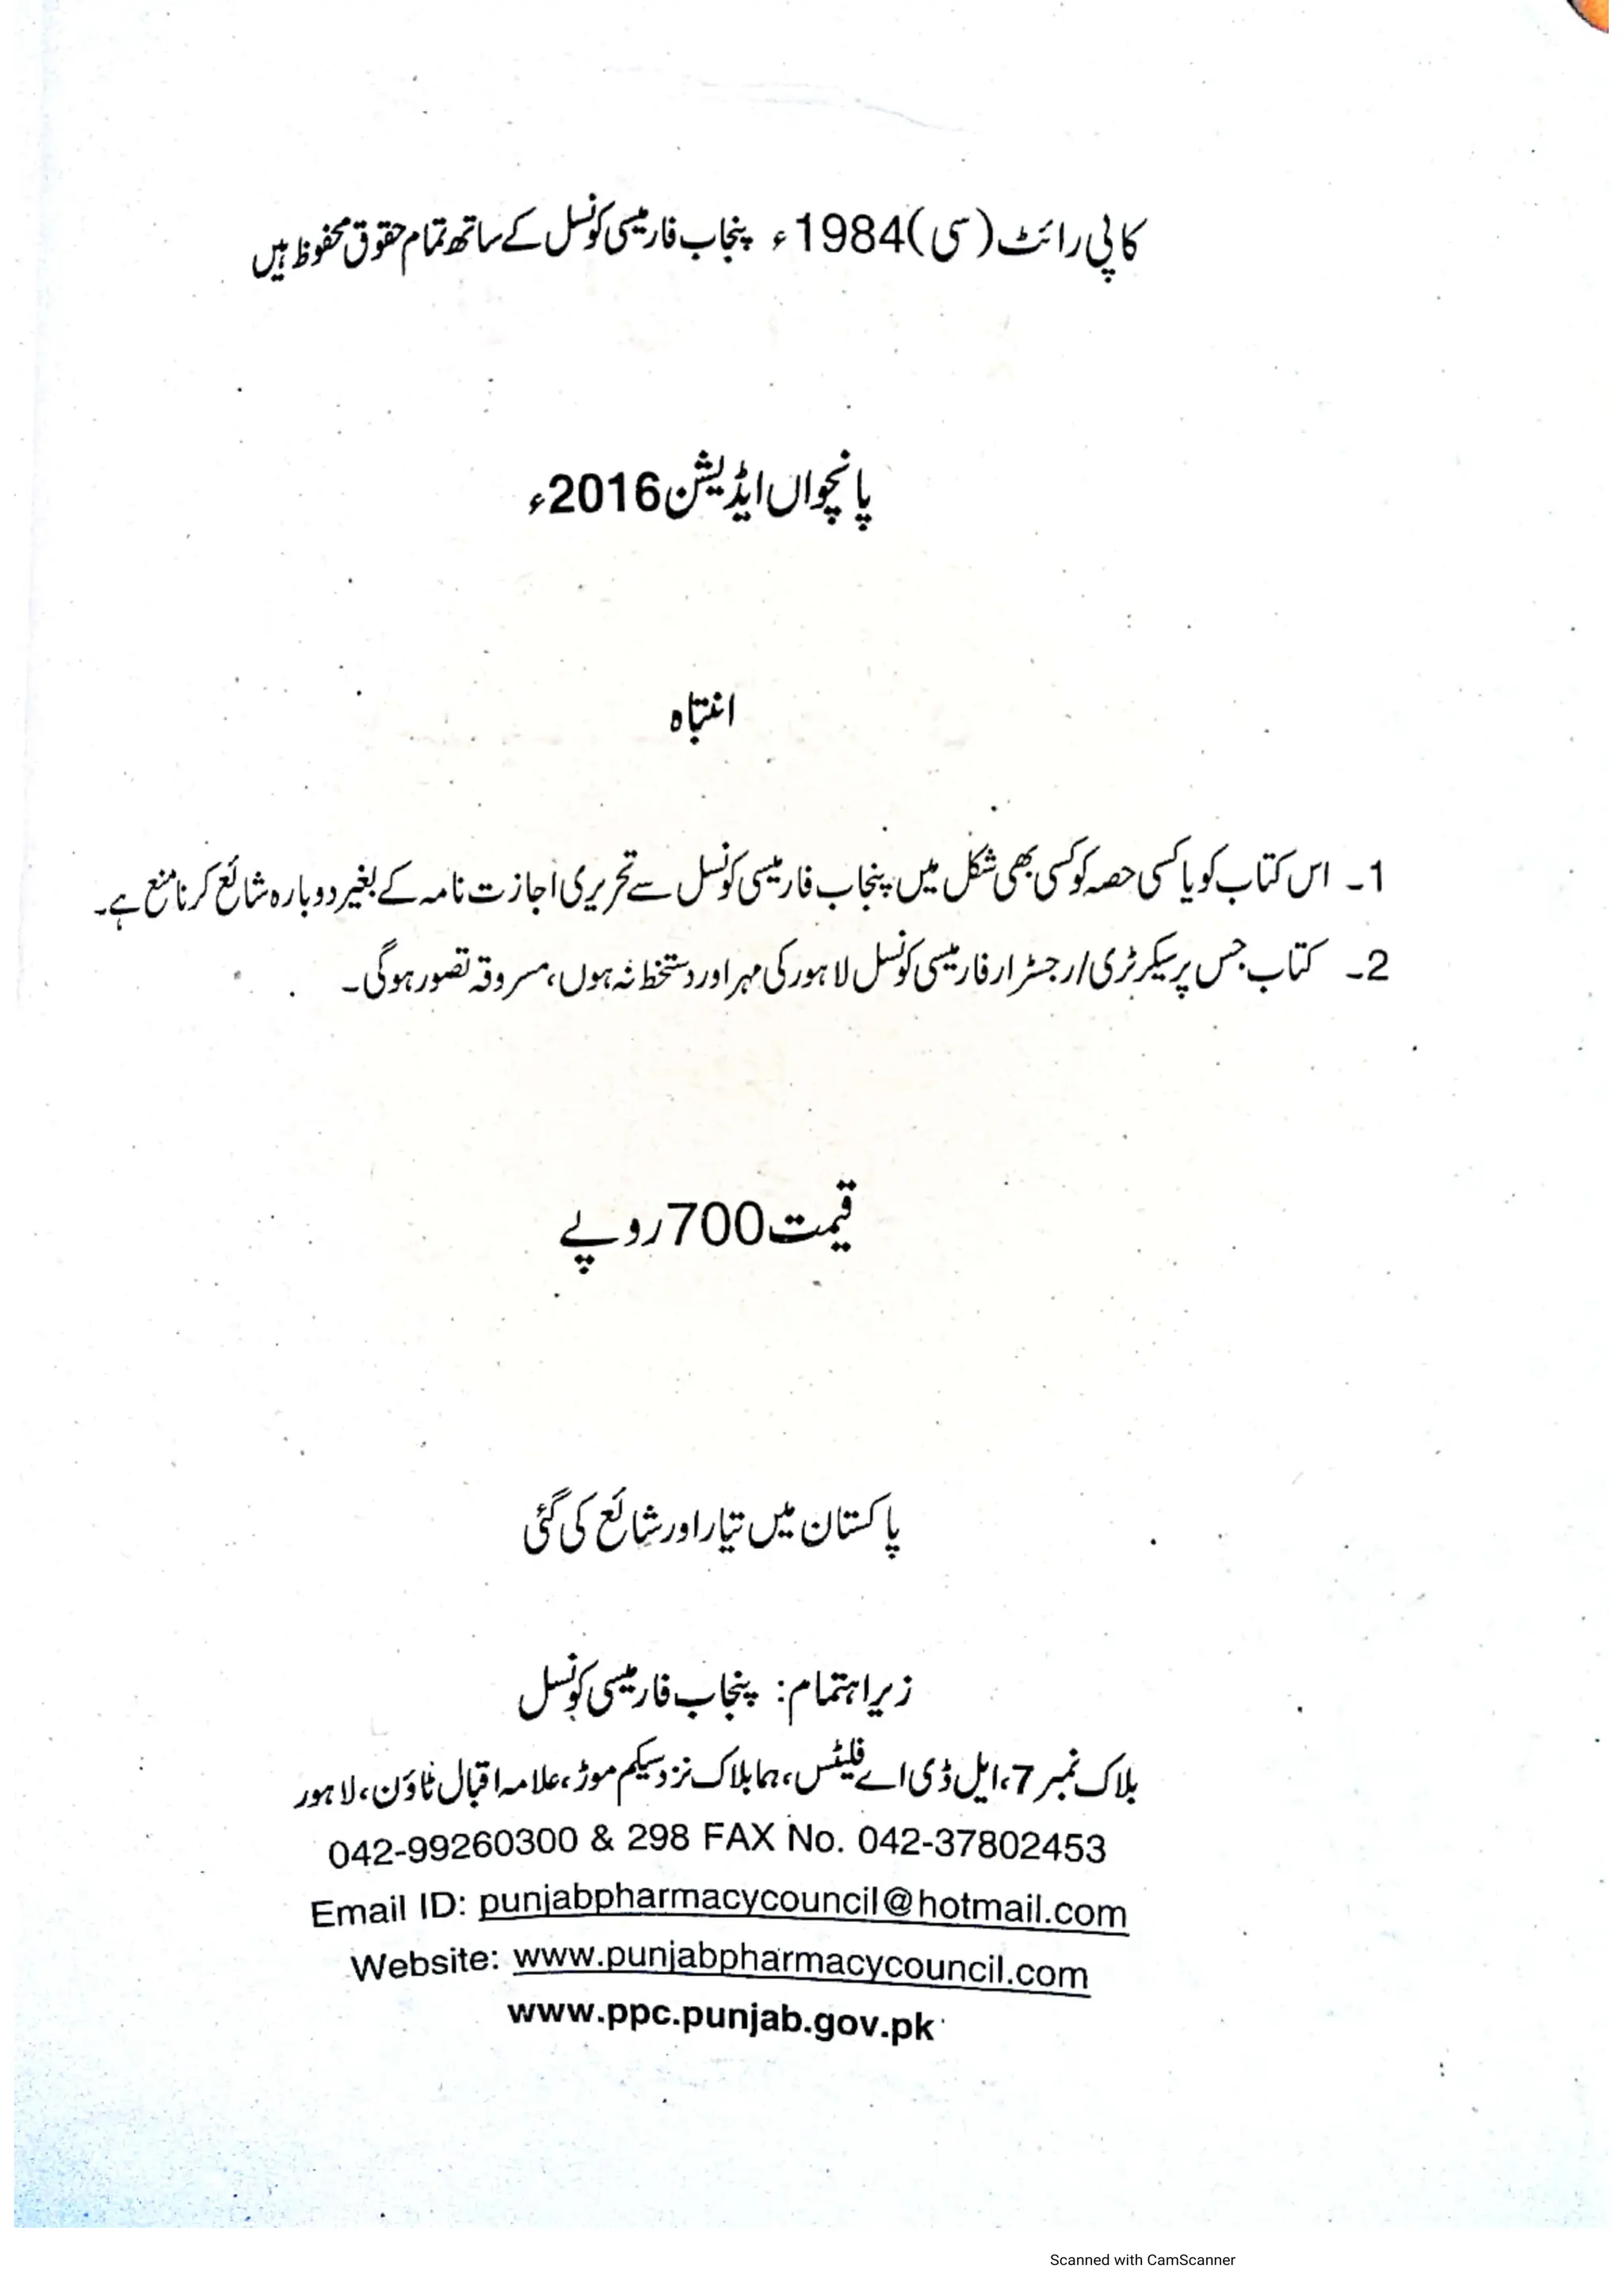 کاپی رائٹ (سی) 1984ء پنجاب فارمیسی کونسل کے ساتھ تمام حقوق محفوظ ہیں
پانچواں ایڈیشن 2016ء
انتباہ
1۔ اس کتاب کو یا کسی حصہ کو کسی بھی شکل میں پنجاب فارمیسی کونسل سے تحریری اجازت نامہ کے بغیر دوبارہ شائع کرنا منع ہے۔
2۔ کتاب جس پر سیکرٹری/رجسٹرار فارمیسی کونسل لاہور کی مہر اور دستخط نہ ہوں، مسروقہ تصور ہوگی۔
قیمت 700 روپے
پاکستان میں تیار اور شائع کی گئی
زیر اہتمام: پنجاب فارمیسی کونسل
بلاک نمبر 7، ایل ڈی اے فلیٹس، ہما بلاک نزد سکیم موڑ، علامہ اقبال ٹاؤن، لاہور
042-99260300 & 298 FAX No. 042-37802453
Email ID: punjabpharmacycouncil@hotmail.com
Website: www.punjabpharmacycouncil.com
www.ppc.punjab.gov.pk
Scanned with CamScanner